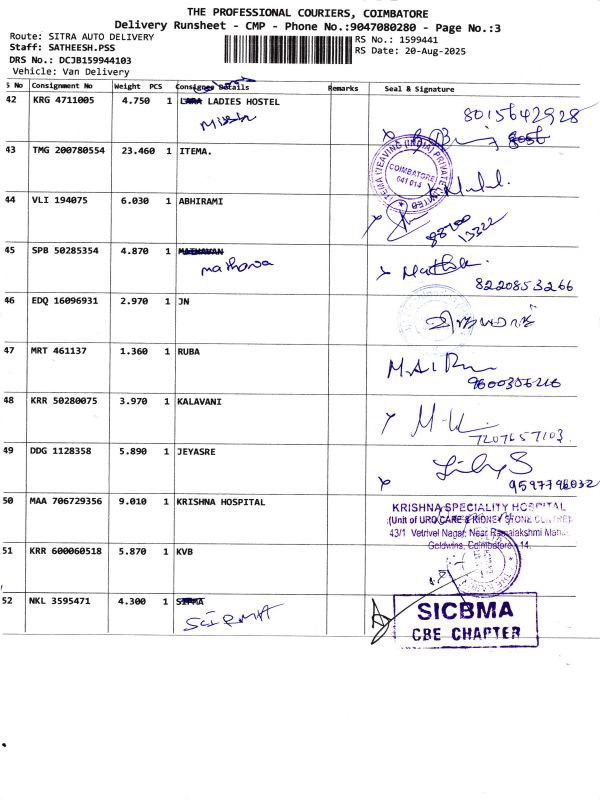 THE PROFESSIONAL COURIERS, COIMBATORE
Delivery Runsheet - CMP - Phone No.:9047080280 - Page No.:3
Route: SITRA AUTO DELIVERY
RS No.: 1599441
Staff: SATHEESH.PSS
RS Date: 20-Aug-2025
DRS No.: DCJB159944103
Vehicle: Van Delivery
S No Consignment No Weight PCS Consignee Details Remarks Seal & Signature
42 KRG 4711005 4.750 1 LARA LADIES HOSTEL
8015642928
43 TMG 200780554 23.460 1 ITEMA.
ITEMA WEAVING (INDIA) PRIVATE LIMITED
COIMBATORE
641 014
44 VLI 194075 6.030 1 ABHIRAMI
98700
13322
45 SPB 50285354 4.870 1 MATHAVAN
mathava
8220853266
46 EDQ 16096931 2.970 1 JN
47 MRT 461137 1.360 1 RUBA
9600306216
48 KRR 50280075 3.970 1 KALAVANI
7207657103
49 DDG 1128358 5.890 1 JEYASRE
9597796032
50 MAA 706729356 9.010 1 KRISHNA HOSPITAL
KRISHNA SPECIALITY HOSPITAL
(Unit of URO CARE & KIDNEY STONE CENTRE)
43/1 Vetrivel Nagar, Near Ramalakshmi Mahal,
Goldwins, Coimbatore - 14.
51 KRR 600060518 5.870 1 KVB
52 NKL 3595471 4.300 1 SIPMA
SICBMA
CBE CHAPTER